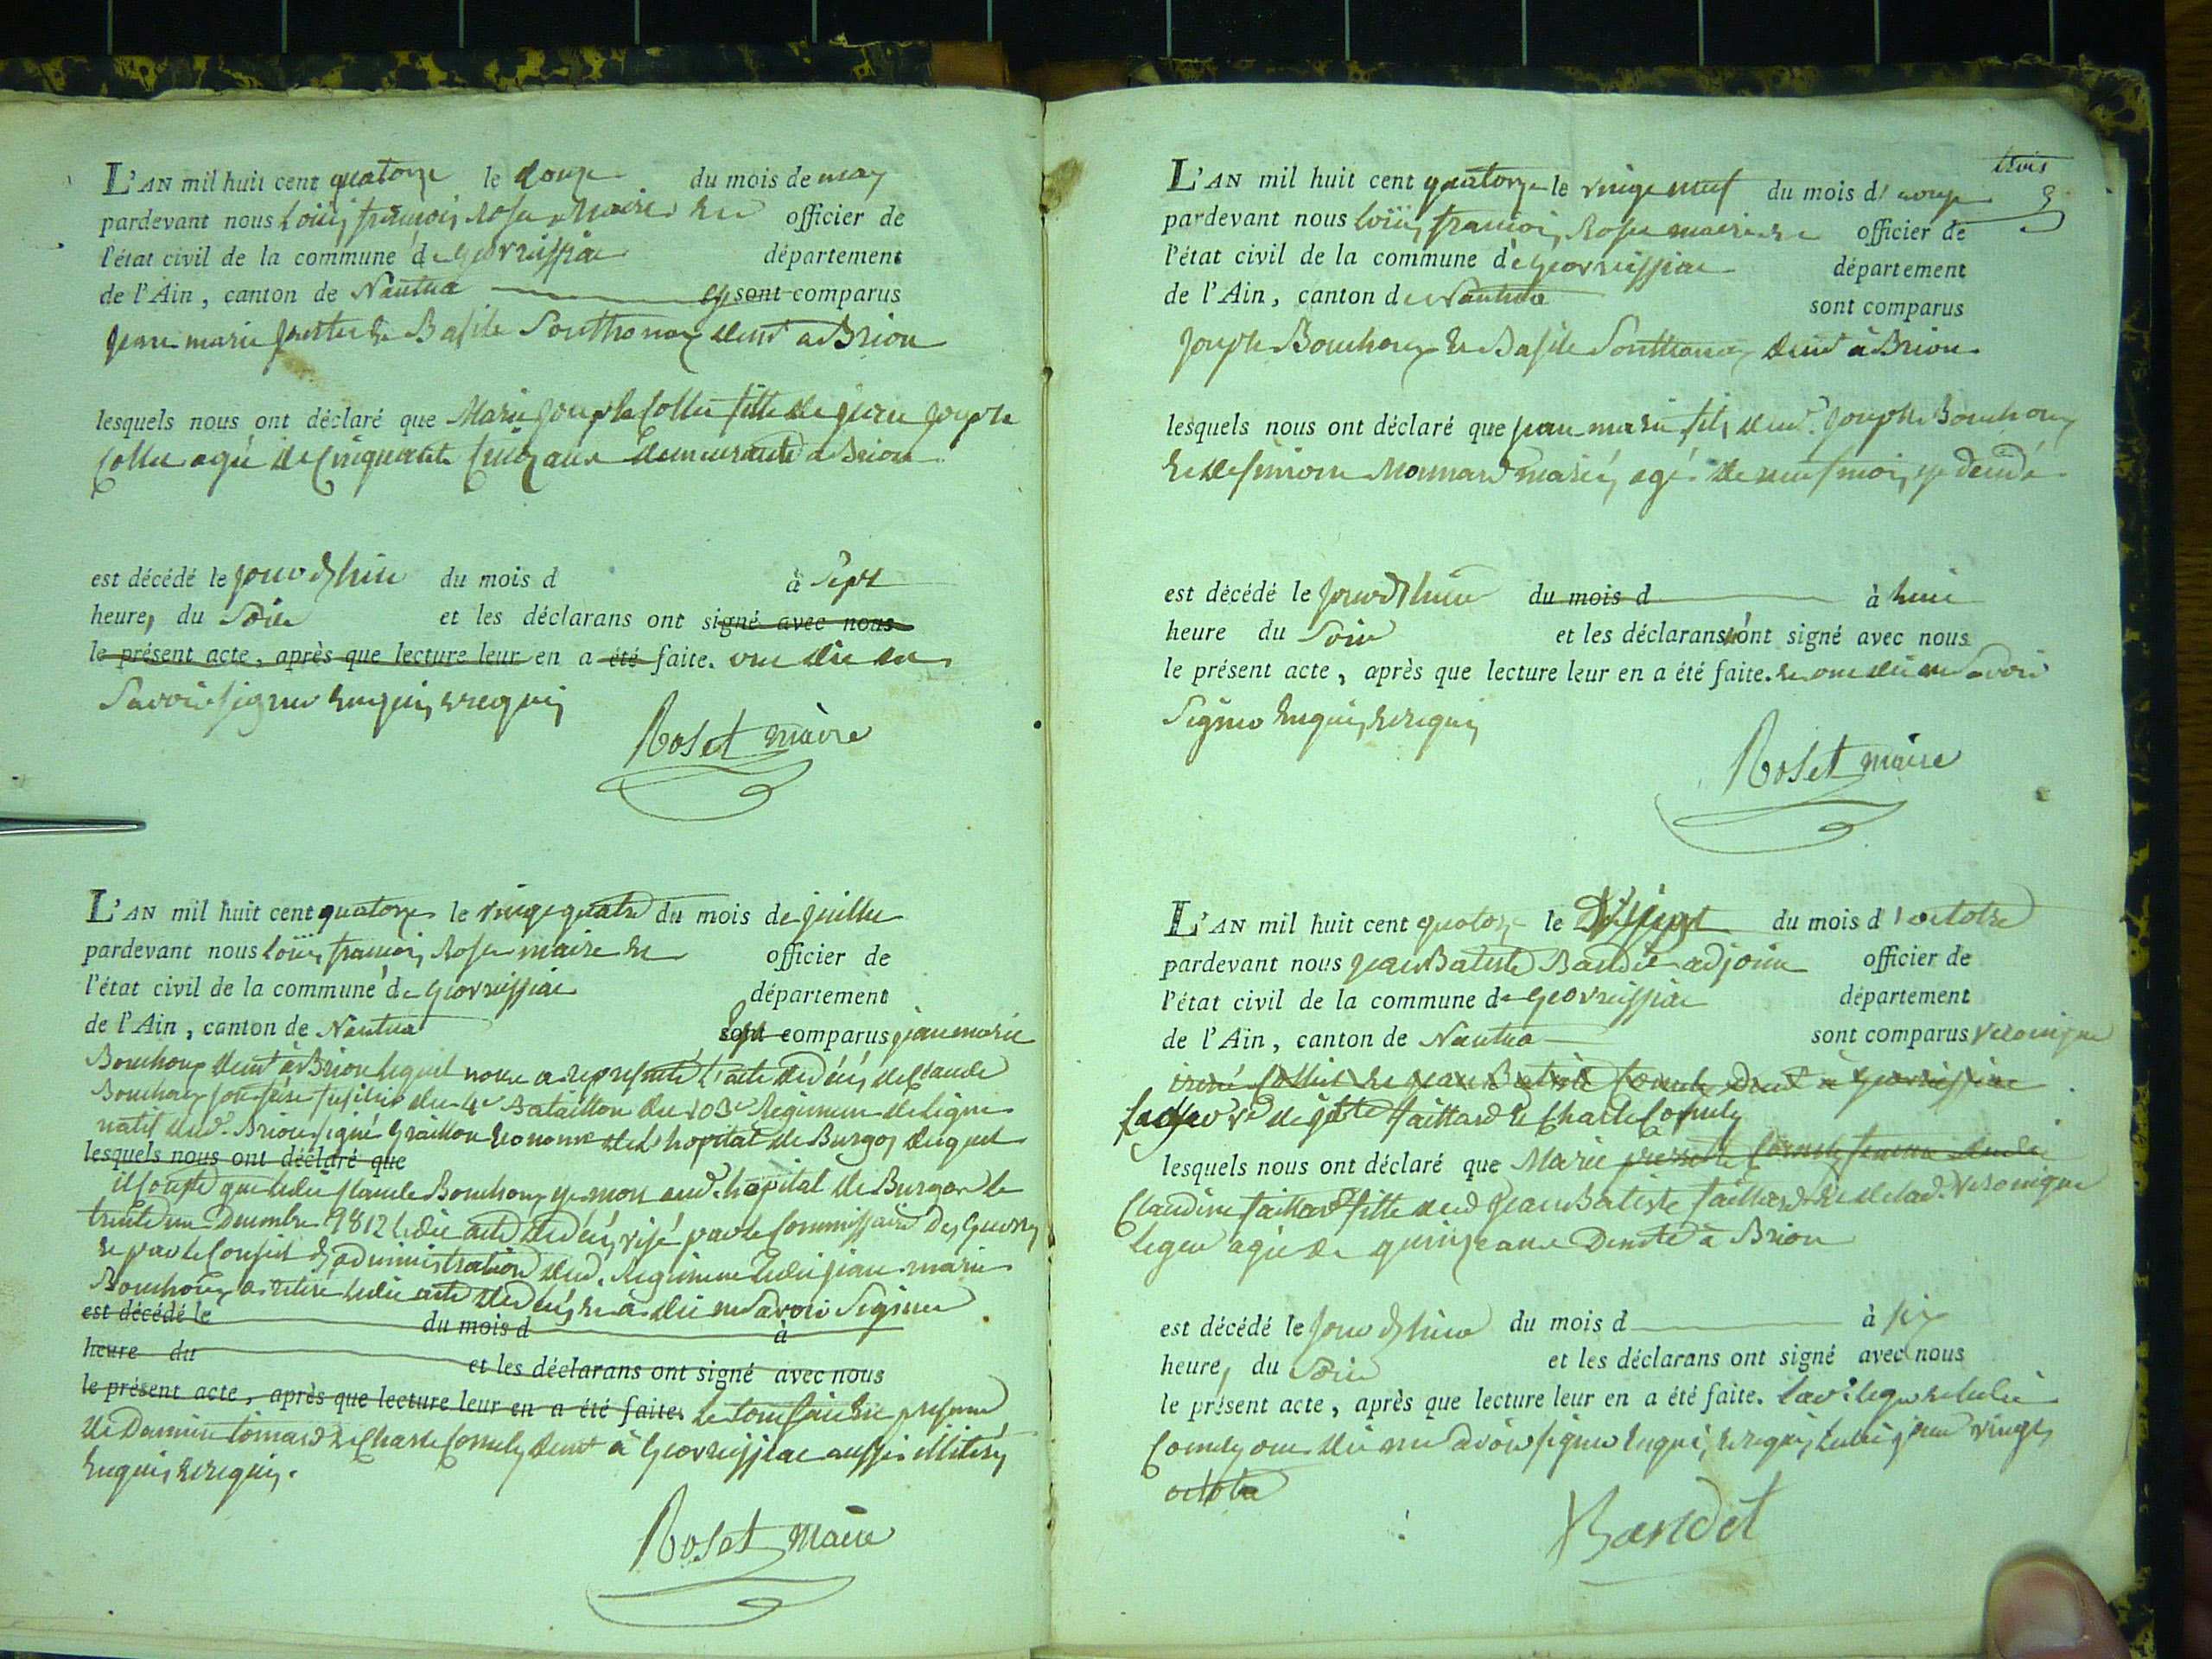 L'AN mil huit cent quatorze le douze du mois de may
pardevant nous Loüis françois Roset maire et officier de
l'état civil de la commune de Geovreissiat département
de l'Ain, canton de Nantua sont comparus
jean marie et Basile Southonax demt a Brion
lesquels nous ont déclaré que Marie Josephe Collet fille de jean joseph
Collet agée de Cinquante Cinq ans demeurante a Brion
est décédé le jourdhui du mois d à Sept
heures du Soir et les déclarans ont signé avec nous
le présent acte, après que lecture leur en a été faite. ont dit ne
Savoir signer enquis et requis
Roset maire
L'AN mil huit cent quatorze le vingt quatre du mois de juillet
pardevant nous Loüis françois Roset maire et officier de
l'état civil de la commune de Geovreissiat département
de l'Ain, canton de Nantua sont comparus jean marie
Bouchoux demt à Brion lequel nous a representé l'acte de décés de Claude
Bouchoux son frère fusilier du 4e Bataillon du 103e Regiment de Ligne
natif dud. Brion signé econome de L'hopital de Burgos duquel
lesquels nous ont déclaré que
il conste que ledit Claude Bouchoux est mort aud. hopital de Burgos le
trente un Decembre 1812 ledit acte de décés visé par le Commissaire Des Guerres
et par le Conseil d'administration dud. Regiment ledit jean marie
Bouchoux a retiré ledit acte de décés et a dit ne Savoir Signer
est décédé le du mois d à
heure du et les déclarans ont signé avec nous
le présent acte, après que lecture leur en a été faite. Le tout fait en presence
de et Charle Cornely demt à Geovreissiat aussi illitérés
enquis et requis.
Roset Maire
trois
3
L'AN mil huit cent quatorze le vingt neuf du mois d'aoust
pardevant nous Loüis françois Roset maire et officier de
l'état civil de la commune de Geovreissiat département
de l'Ain, canton de Nantua sont comparus
Joseph Bouchoux et Basile Southonax demt à Brion
lesquels nous ont déclaré que jean marie fils dud. Joseph Bouchoux
et de Monnard mariés agé de neuf mois est décédé
est décédé le jourdhui du mois d à huit
heure du Soir et les déclarans n'ont signé avec nous
le présent acte, après que lecture leur en a été faite. et ont dit ne Savoir
Signer enquis et requis
Roset maire
L'AN mil huit cent quatorze le Dixsept du mois d'octobre
pardevant nous jean Batiste Bandet adjoint officier de
l'état civil de la commune de Geovreissiat département
de l'Ain, canton de Nantua sont comparus Veronique
Collet et jean Batiste Cornely Demt à Geovreissiat
ve de Taillard et Charle Cornely
lesquels nous ont déclaré que Marie
Claudine Taillard fille dud Jean Batiste Taillard et de lad. Veronique
Leger agée de quinze ans Demte à Brion
est décédé le jourdhui du mois d à six
heures du Soir et les déclarans ont signé avec nous
le présent acte, après que lecture leur en a été faite. Lad. Leger et ledit
Cornely ont dit ne Savoir signer enquis et requis jour vingt
octobre
Bandet